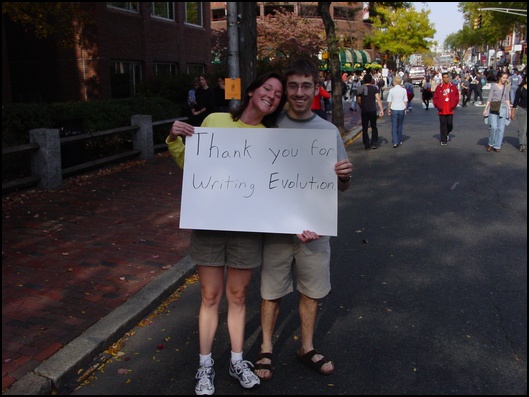 Thank you for
Writing Evolution